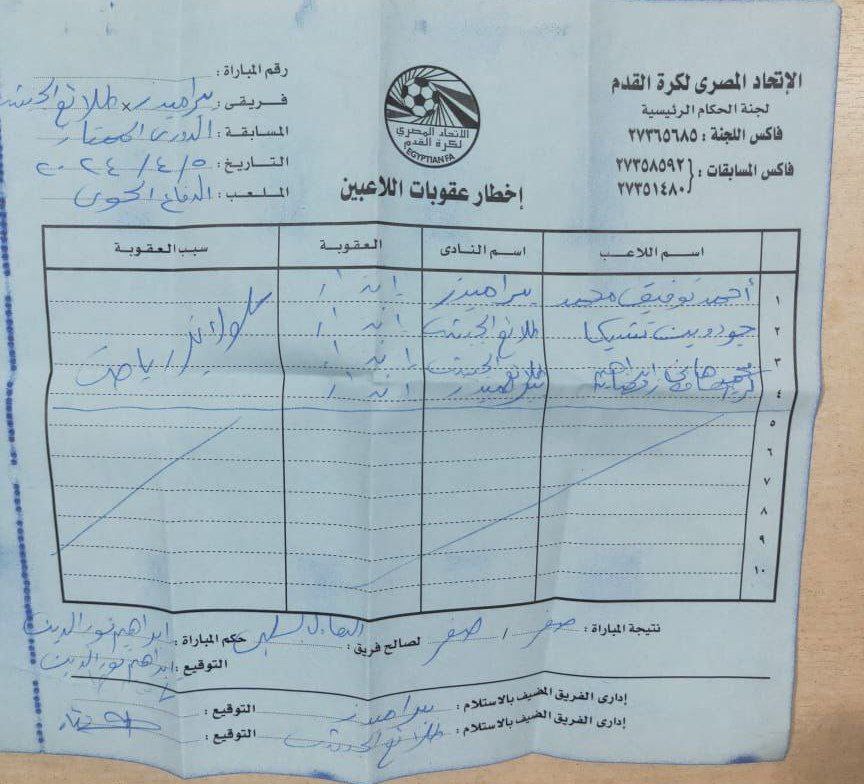 الإتحاد المصرى لكرة القدم
لجنة الحكام الرئيسية
فاكس اللجنة : ٢٧٣٦٥٦٨٥
فاكس المسابقات : ٢٧٣٥٨٥٩٢
٢٧٣٥١٤٨٠
الاتحاد المصري
لكرة القدم
EGYPTIAN FA
إخطار عقوبات اللاعبين
رقم المباراة :
فريقى : بيراميدز × طلائع الجيش
المسابقة : الدورى الممتاز
التاريخ : ٥ / ٤ / ٢٠٢٤
الملعب : الدفاع الجوى
اسم اللاعب اسم النادى العقوبة سبب العقوبة
١ أحمد توفيق محمد بيراميدز إنذار
٢ جودوين تشيكا طلائع الجيش إنذار سلوك غير رياضى
٣ طلائع الجيش إنذار
٤ كريم حافظ رمضان بيراميدز إنذار
٥
٦
٧
٨
٩
١٠
نتيجة المباراة : صفر / صفر لصالح فريق : التعادل السلبى حكم المباراة : ابراهيم نور الدين
التوقيع : ابراهيم نور الدين
إدارى الفريق المضيف بالاستلام : بيراميدز التوقيع :
إدارى الفريق الضيف بالاستلام : طلائع الجيش التوقيع :